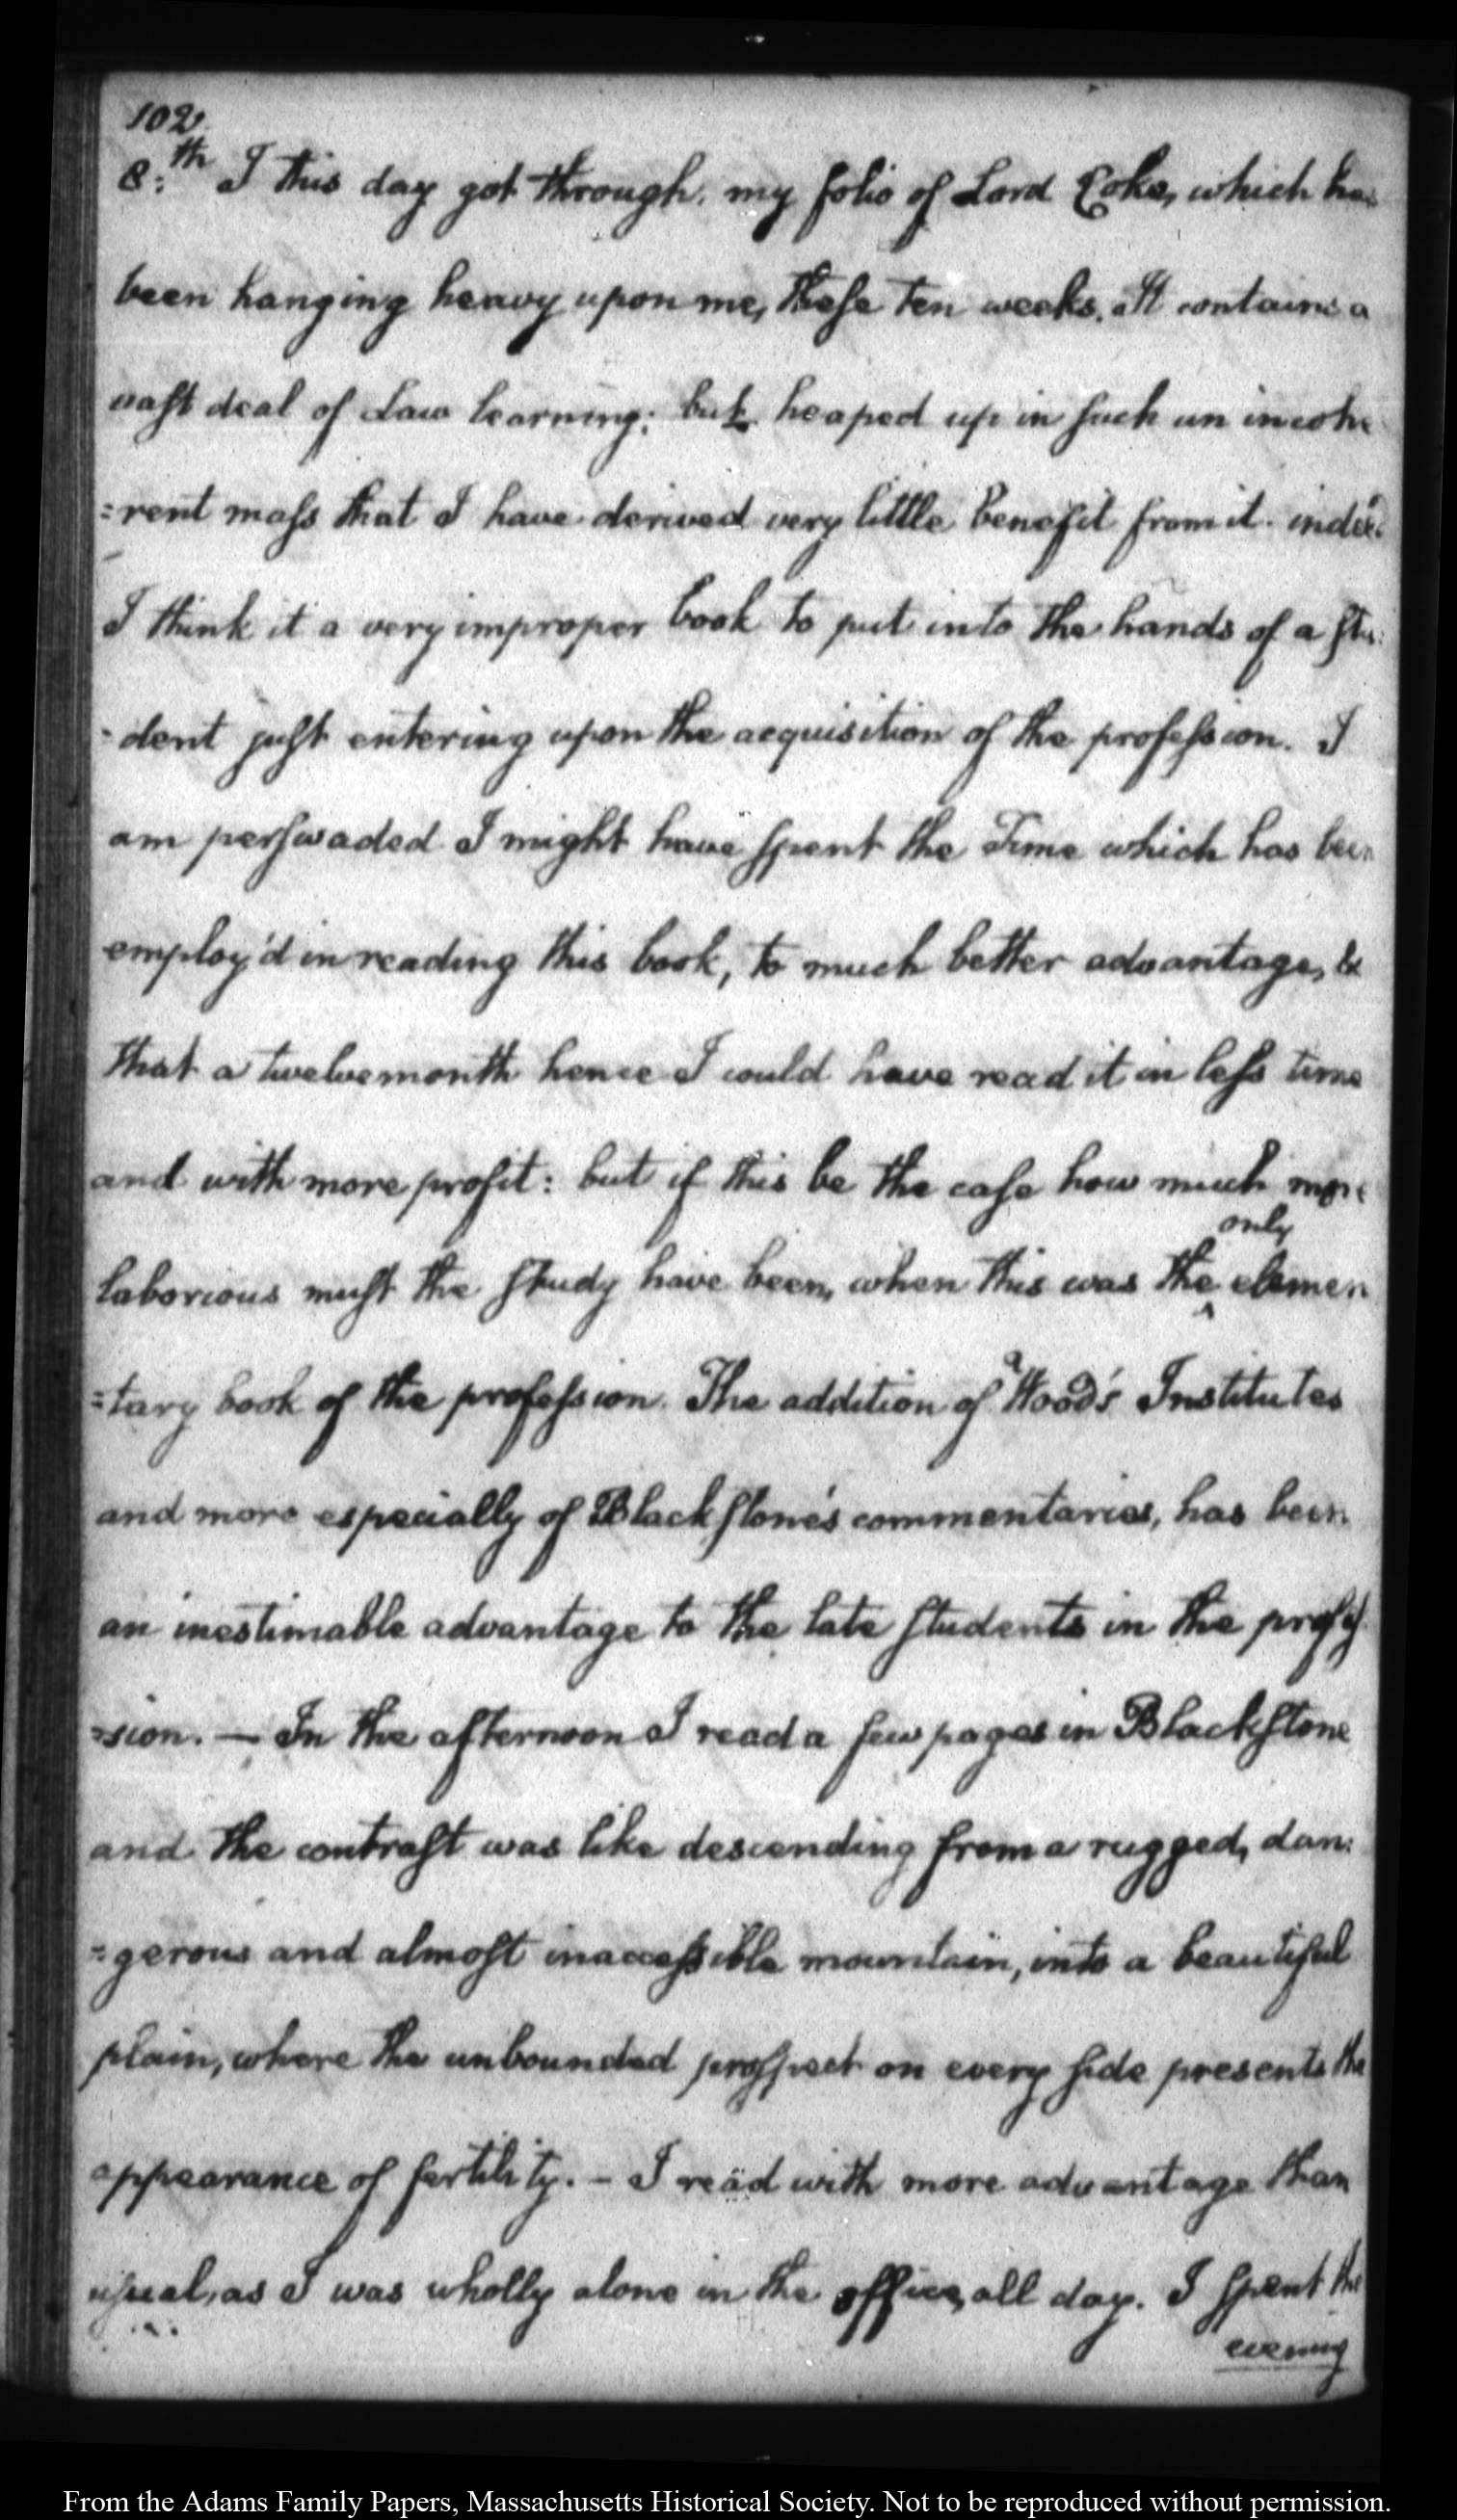 102
8:th I this day got through, my folio of Lord Coke, which has
been hanging heavy upon me, these ten weeks. It contains a
vast deal of Law learning; but heaped up in such an incohe
=rent mass that I have derived very little benefit from it. indeed
I think it a very improper book to put into the hands of a stu:
=dent just entering upon the acquisition of the profession. I
am perswaded I might have spent the Time which has been
employ'd in reading this book, to much better advantage, &
that a twelvemonth hence I could have read it in less time
and with more profit: but if this be the case how much more
only
laborious must the study have been, when this was the ^ elemen
=tary book of the profession. The addition of Wood's Institutes
and more especially of Blackstone's commentaries, has been
an inestimable advantage to the late students in the profes
=sion. — In the afternoon I read a few pages in Blackstone
and the contrast was like descending from a rugged, dan:
=gerous and almost inaccessible mountain, into a beautiful
plain, where the unbounded prospect on every side presents the
appearance of fertility. - I read with more advantage than
usual, as I was wholly alone in the office, all day. I spent the
evening
From the Adams Family Papers, Massachusetts Historical Society. Not to be reproduced without permission.